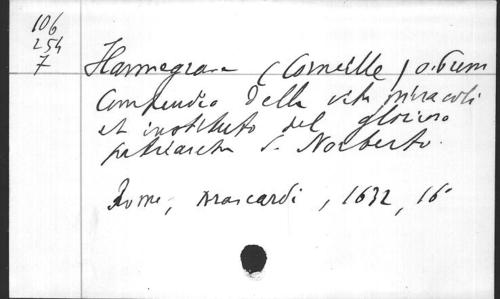 106
254
7
Hanmegrave (Corneille) o. Prem
Compendio della vita miracoli
et instituto del glorioso
patriarcha S. Norberto.
Rome, Mascardi, 1632, 16°